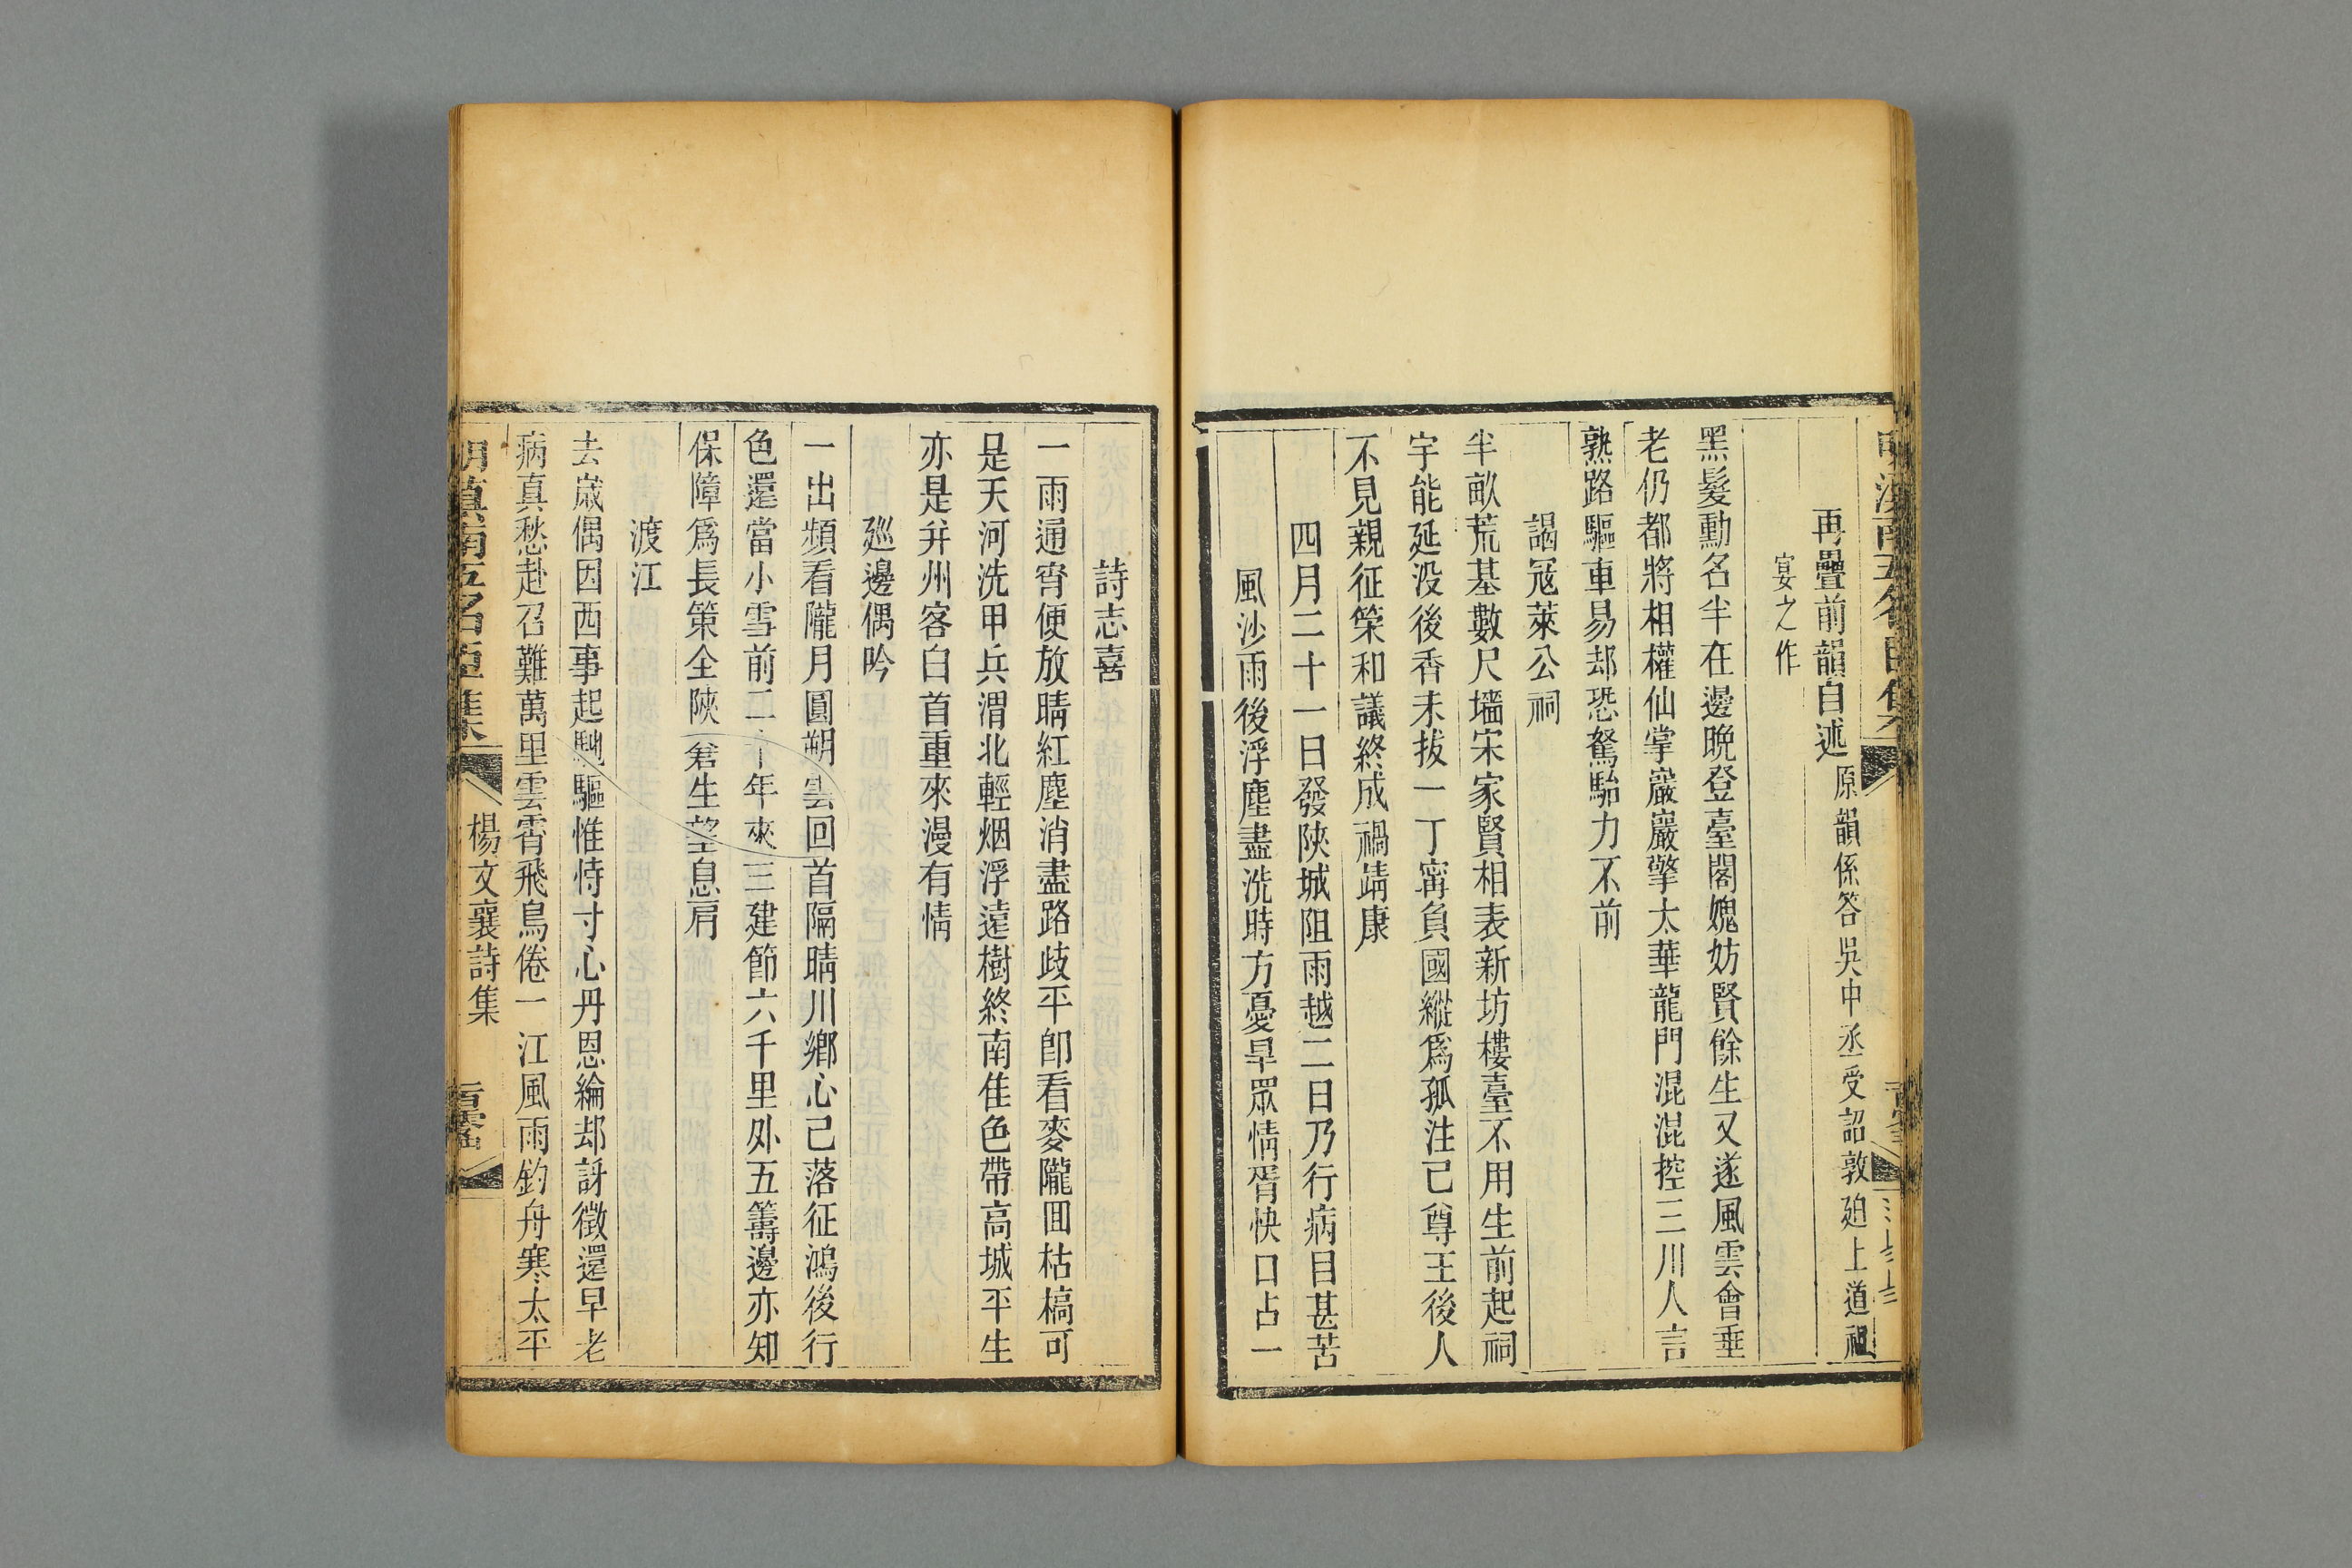 再疊前韻自述原韻係答吳中丞受詔敦廹上道祖
宴之作
黑髮勳名半在邊晩登臺閣媿妨賢餘生又遂風雲會垂
老仍都將相權仙掌巖巖擎太華龍門混混控三川人言
熟路驅車易却恐駑駘力不前
謁冦萊公祠
半畝荒基數尺墻宋家賢相表新坊樓臺不用生前起祠
宇能延没後香未拔一丁甯負國縱爲孤注已尊王後人
不見親征榮和議終成禍靖康
四月二十一日發陝城阻雨越二日乃行病目甚苦
風沙雨後浮塵盡洗時方憂旱眾情胥快口占一
詩志喜
一雨通宵便放晴紅塵消盡路歧平卽看麥隴囬枯槁可
是天河洗甲兵渭北輕烟浮遠樹終南佳色帶高城平生
亦是幷州客白首重來漫有情
廵邊偶吟
一出頻看隴月圓朔雲回首隔晴川鄉心已落征鴻後行
色還當小雪前二十年來三建節六千里外五籌邊亦知
保障爲長策全陝蒼生望息肩
渡江
去歲偶因西事起馳驅惟恃寸心丹恩綸却訝徵還早老
病真愁赴召難萬里雲霄飛鳥倦一江風雨釣舟寒太平
明滇南五名臣集
楊文襄詩集